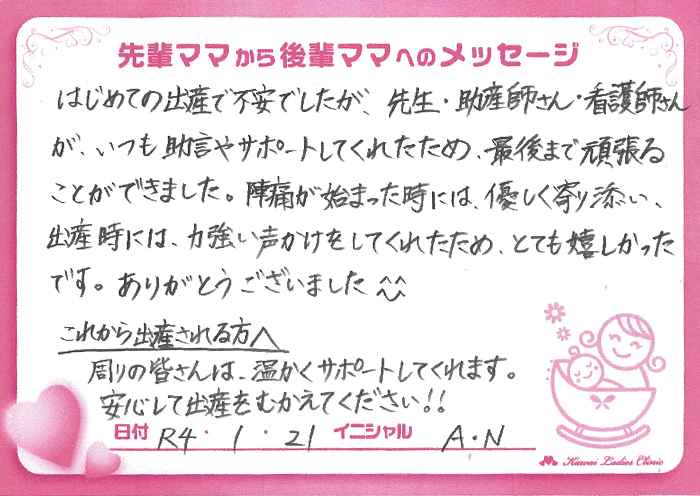 先輩ママから後輩ママへのメッセージ
はじめての出産で不安でしたが、先生・助産師さん・看護師さん
が、いつも助言やサポートしてくれたため、最後まで頑張る
ことができました。陣痛が始まった時には、優しく寄り添い、
出産時には、力強い声かけをしてくれたため、とても嬉しかった
です。ありがとうございました^^
これから出産される方へ
周りの皆さんは、温かくサポートしてくれます。
安心して出産をむかえてください!!
日付 R4・1・21 イニシャル A・N
Kawai Ladies Clinic